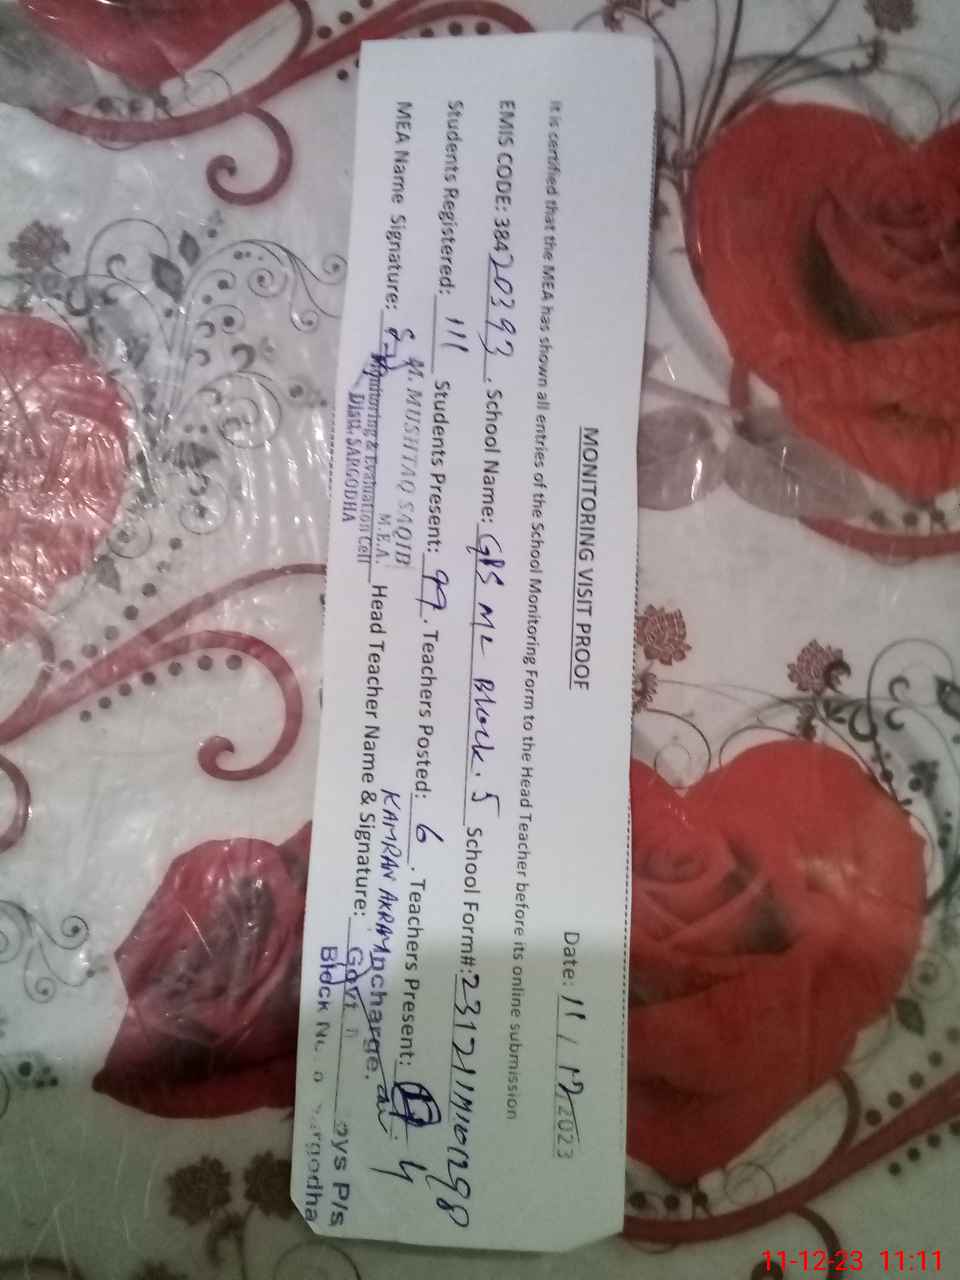 MONITORING VISIT PROOF
Date: 11 / 12/2023
It is certified that the MEA has shown all entries of the School Monitoring Form to the Head Teacher before its online submission
EMIS CODE: 38420393. School Name: GPS MC Block. 5 School Form#:
Students Registered: 111 Students Present: 99. Teachers Posted: 6. Teachers Present: 4
M. MUSHTAQ SAQIB
M.E.A.
KAMRAN AKRAM
Incharge.
MEA Name Signature: Head Teacher Name & Signature:
Monitoring & Evaluation Cell
Distt. SARGODHA
Govt. P/s
Block No.
11-12-23 11:11